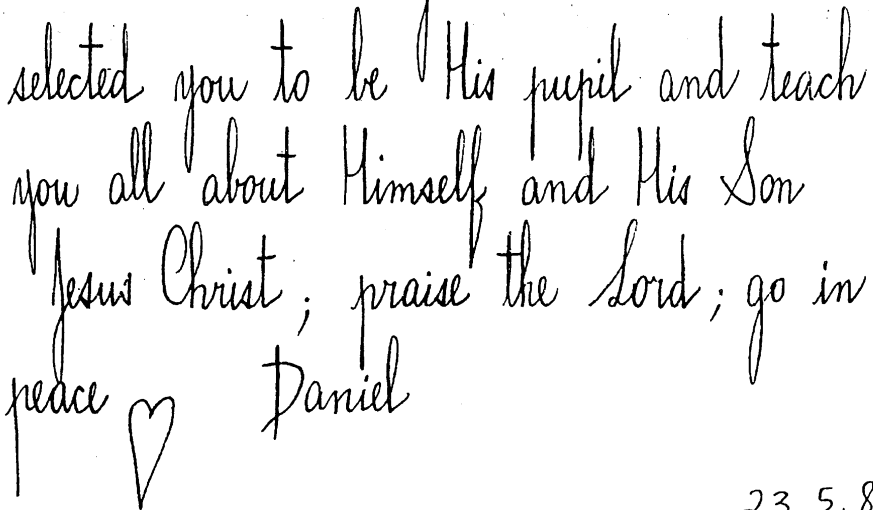 selected you to be His pupil and teach
you all about Himself and His Son
Jesus Christ; praise the Lord; go in
peace ♡ Daniel
23.5.8